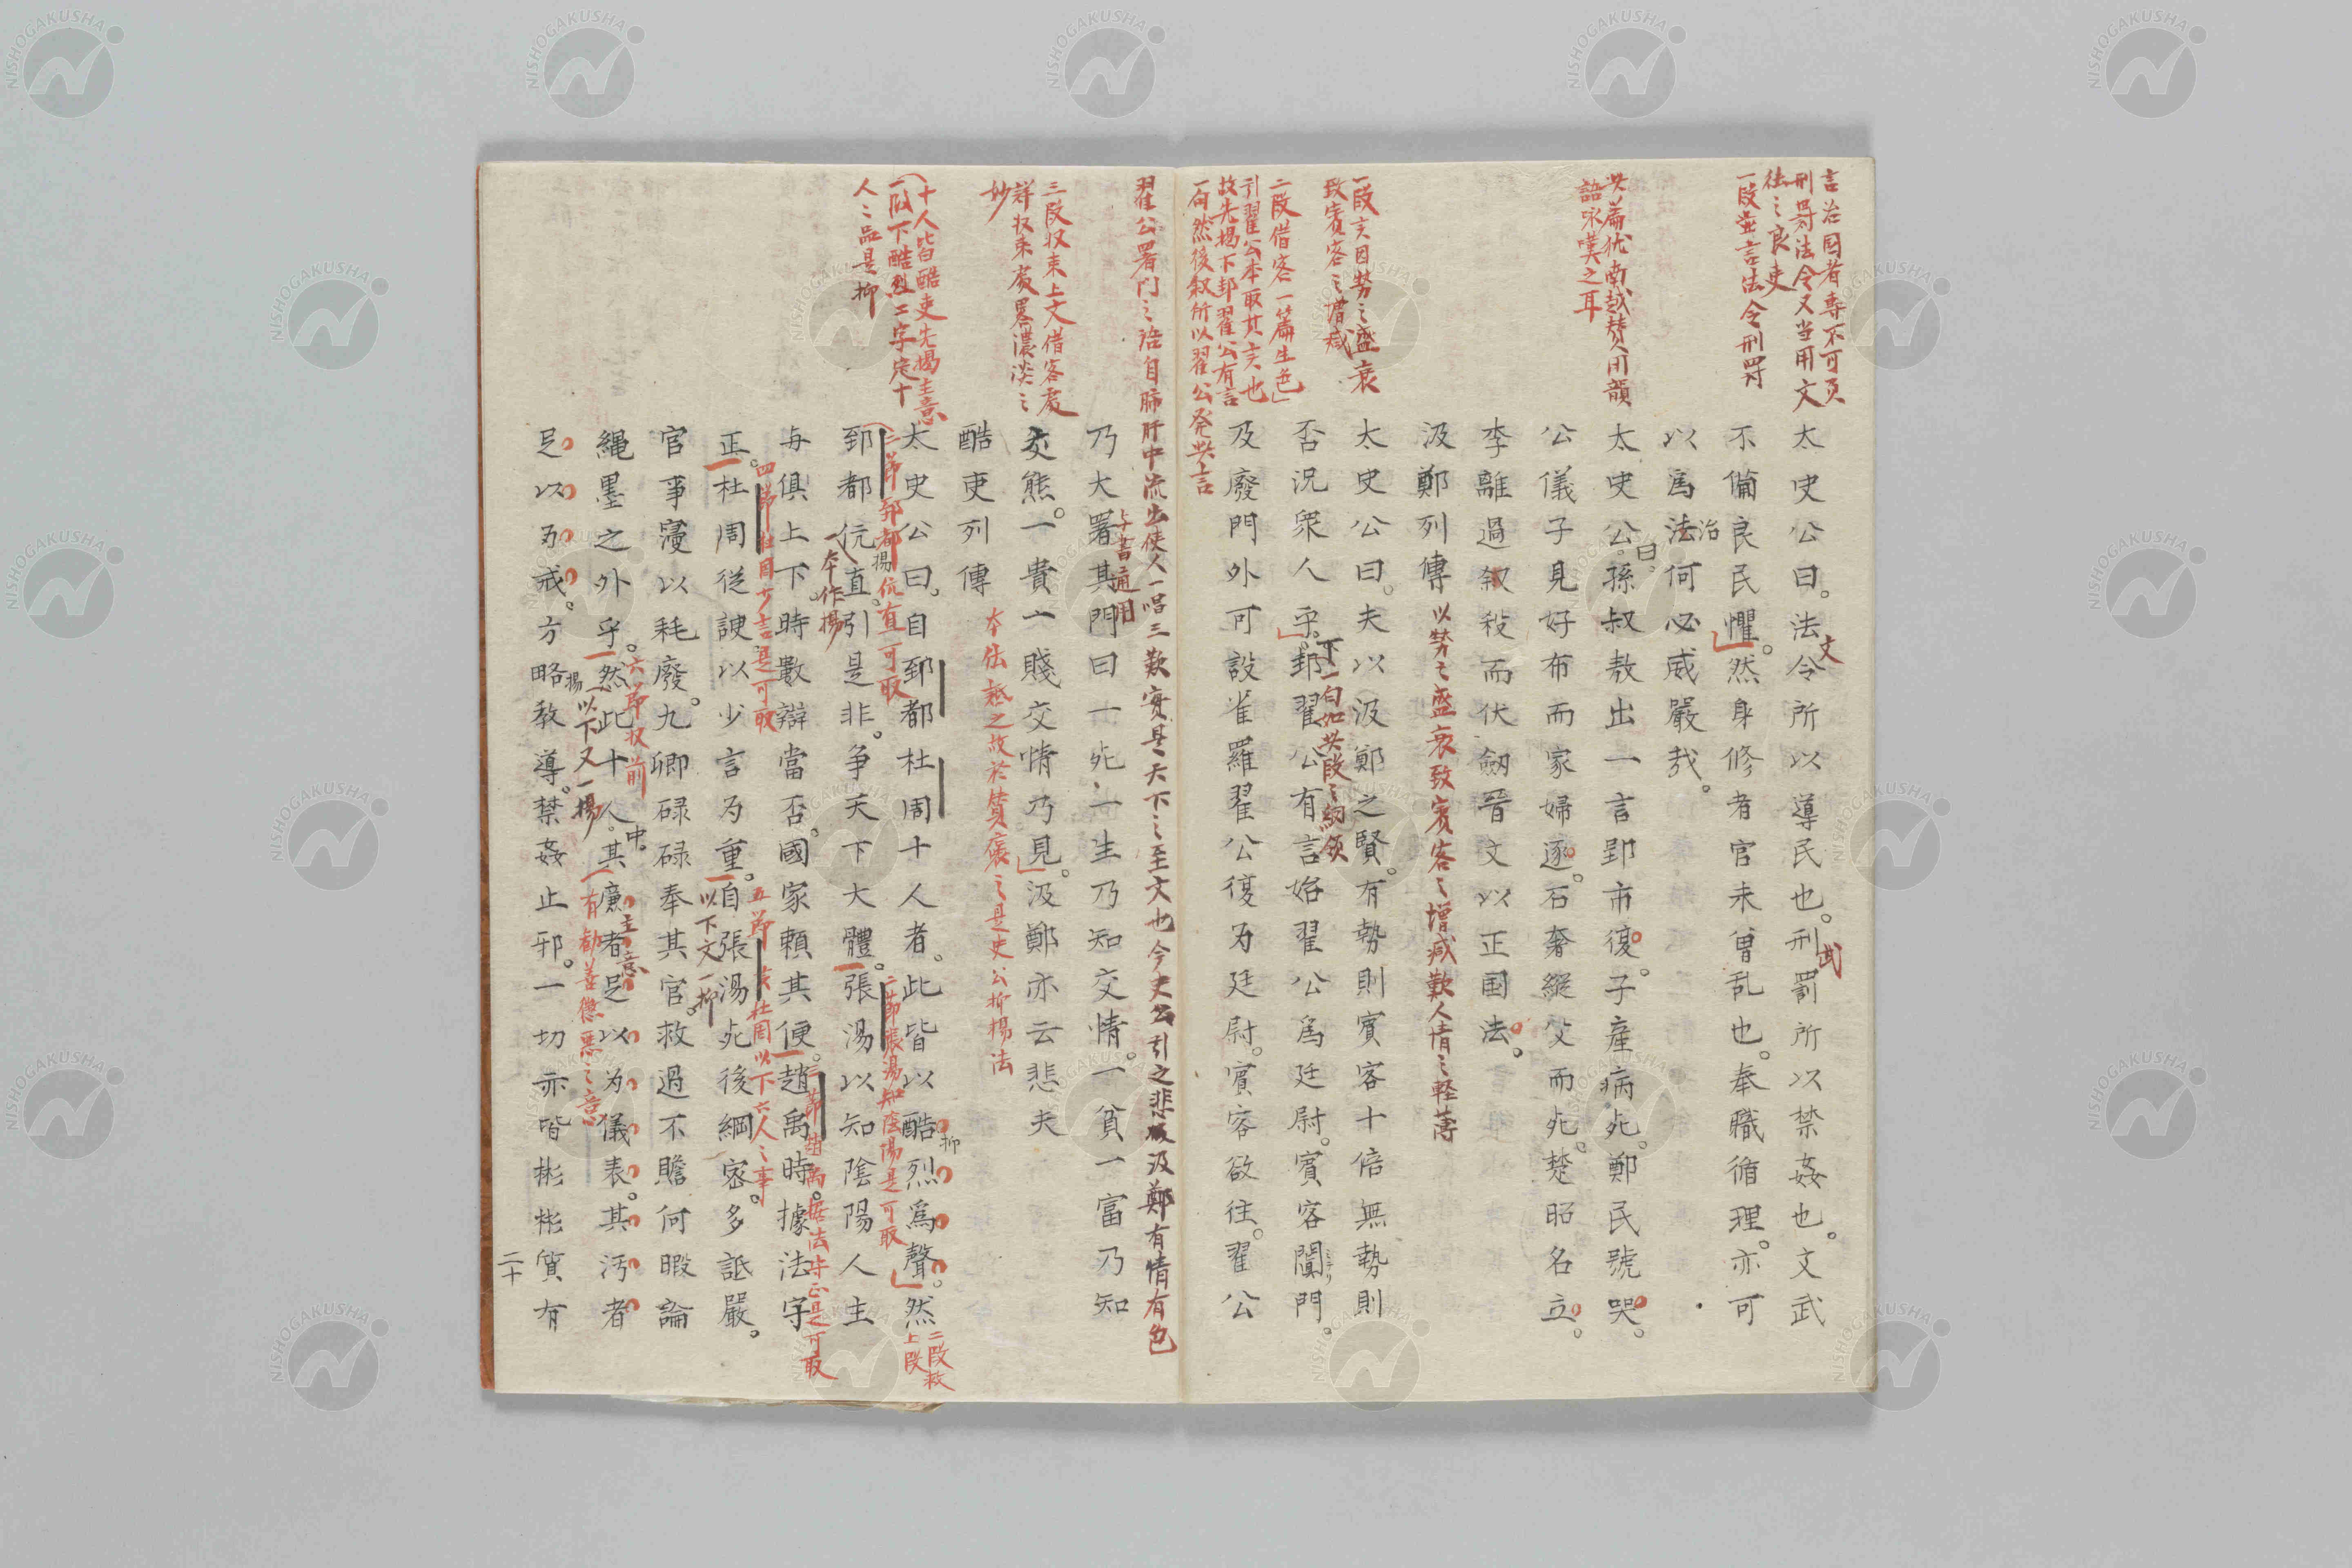 言治国者専不可頁
刑罸法令又当用文
法之良吏
一段並言法令刑罸
太史公曰。法令所以導民也。刑罰所以禁姦也。文武
文
武
不備良民懼。然身修者官未曾乱也。奉職循理。亦可
以為法何必威嚴哉。
治
此篇优南越賛用韻
語咏嘆之耳
太史公。孫叔敖出一言郢市復。子産病死。鄭民號哭。
曰
公儀子見好布而家婦逐。石奢縱父而死。楚昭名立。
李離過叙殺而伏劔晋文以正国法。
汲鄭列傳
以勢之盛衰致賓客之増减歎人情之軽薄
一段言因勢之盛衰
致賓客之増减
太史公曰。夫以汲鄭之賢。有勢則賓客十倍無勢則
否況衆人乎。邽翟公有言始翟公為廷尉。賓客闐門。
下
一句如此段之綱領
二段借客一篇生色
引翟公本取其言也
故先揭下邽翟公有言
一句然後叙所以翟公発此言
及廢門外可設雀羅翟公復为廷尉。賓客欲往。翟公
翟公署門之語自肺肝中流出使人一唱三歎実是天下之至文也今史公引之悲汲鄭有情有色
乃大署其門曰一死一生乃知交情。一貧一富乃知
与書通用
三段収束上文借客処
詳収束処畧濃淡之
妙
交熊。一貴一賤交情乃見。汲鄭亦云悲夫
酷吏列傳
本伝貶之故於賛褒之是史公抑揚法
十人皆酷吏先揭主意
一段下酷烈二字定十
人之品是抑
太史公曰。自郅都杜周十人者。此皆以酷烈為聲。然
抑
二段救
上段
一節郅都伉直可取
揚
郅都伉直。引是非。争天下大體。張湯以知陰陽人主
本作揚
二節張湯知陰陽是可取
与俱上下。時數辯當否。國家頼其便。趙禹時據法守
三節趙禹据法守正是可取
四節杜周少言是可取
正。杜周従諛以少言为重。自張湯死後網密。多詆嚴。
五節言杜周以下六人之事
以下文一抑
官事寖以耗廢。九卿碌碌奉其官。救過不贍何暇論
六節収前
縄墨之外乎。然此十人。其廉者足以为儀表。其汚者
中
主意
以下又一揚
有勧善懲悪之意
足以为戒。方略教導。禁姦止邪。一切亦皆彬彬質有
揚
二十
NISHOGAKUSHA